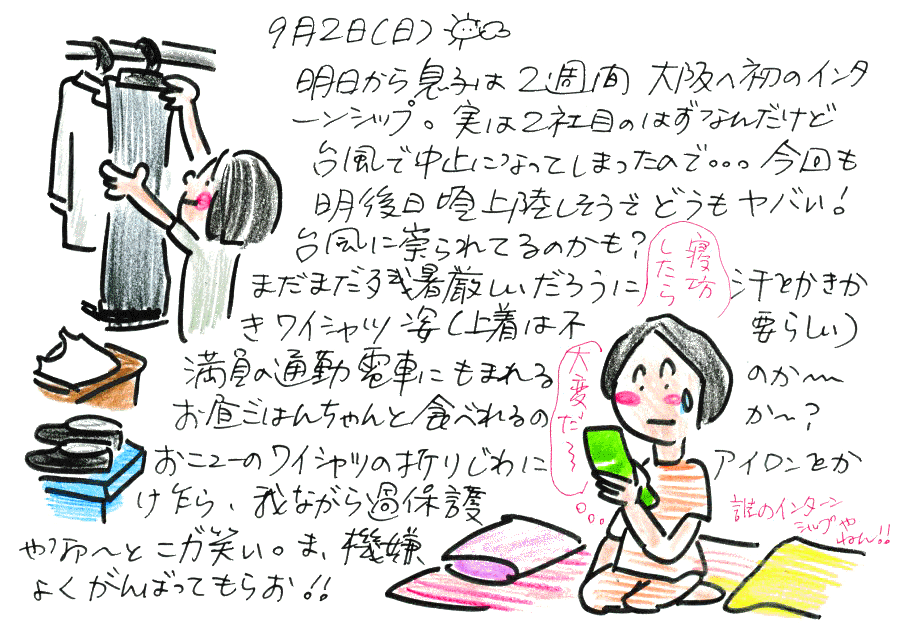 9月2日(日)
明日から息子は2週間 大阪へ初のインタ
ーンシップ。実は2社目のはずなんだけど
台風で中止になってしまったので。。。今回も
明後日 上陸しそうでどうもヤバい!
台風に祟られてるのかも?
まだまだ残暑厳しいだろうに 汗をかきか
きワイシャツ姿(上着は不 要らしい)
満員の通勤電車にもまれる のか〜
お昼ごはんちゃんと食べれるの か〜?
おニューのワイシャツの折りじわに アイロンをか
けたら、我ながら過保護
やのぉ〜と二ガ笑い。ま、機嫌
よくがんばってもらお!!
寝坊
したら
大変だろ〜
誰のインターン
シップや
ねん!!